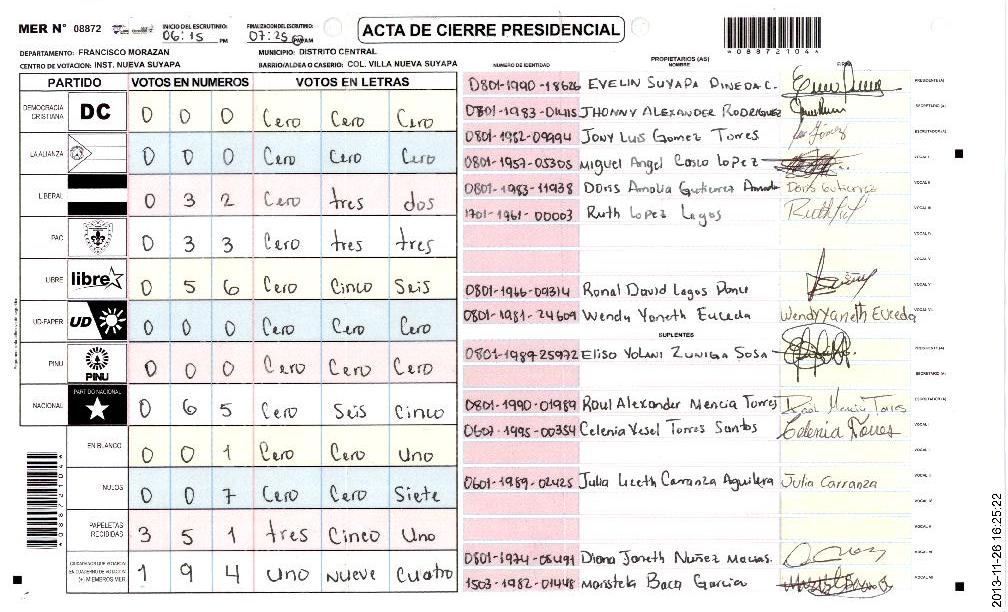 MER N° 08872
INICIO DEL ESCRUTINIO: 06:15 PM
FINALIZACION DEL ESCRUTINIO: 07:25 PM/AM
ACTA DE CIERRE PRESIDENCIAL
088721041
DEPARTAMENTO: FRANCISCO MORAZAN
MUNICIPIO: DISTRITO CENTRAL
CENTRO DE VOTACION: INST. NUEVA SUYAPA
BARRIO/ALDEA O CASERIO: COL. VILLA NUEVA SUYAPA
PARTIDO VOTOS EN NUMEROS VOTOS EN LETRAS
DEMOCRACIA CRISTIANA DC 0 0 0 Cero Cero Cero
LA ALIANZA 0 0 0 Cero Cero Cero
LIBERAL 0 3 2 Cero tres dos
PAC 0 3 3 Cero tres tres
LIBRE libre 0 5 6 Cero Cinco Seis
UD-FAPER UD 0 0 0 Cero Cero Cero
PINU PINU 0 0 0 Cero Cero Cero
NACIONAL PARTIDO NACIONAL 0 6 5 Cero Seis Cinco
EN BLANCO 0 0 1 Cero Cero Uno
NULOS 0 0 7 Cero Cero Siete
PAPELETAS RECIBIDAS 3 5 1 tres Cinco Uno
CIUDADANOS QUE VOTARON EN CUADERNO DE VOTACION (+) MIEMBROS MER 1 9 4 Uno Nueve Cuatro
PROPIETARIOS (AS)
NUMERO DE IDENTIDAD NOMBRE FIRMA
0801-1990-18626 EVELIN SUYAPA PINEDA C. PRESIDENTE(A)
0801-1983-01415 JHONNY ALEXANDER RODRIGUEZ SECRETARIO (A)
0801-1982-09994 Jony Luis Gomez Torres ESCRUTADOR (A)
0801-1957-05305 Miguel Angel Cosco Lopez VOCAL I
0801-1983-11938 Doris Amalia Gutierrez Amador Doris Gutierrez VOCAL II
1701-1961-00003 Ruth Lopez Lagos VOCAL III
VOCAL IV
VOCAL V
0801-1966-09314 Ronal David Lagos Ponce
0801-1981-24609 Wendy Yaneth Euceda Wendy Yaneth Euceda
SUPLENTES
0801-1989-25972 Eliso Yolani Zuniga Sosa
SECRETARIO (A)
0801-1990-01989 Raul Alexander Mencia Torres Raul Mencia Torres ESCRUTADOR (A)
0607-1995-00354 Celenia Yesel Torres Santos Celenia Torres VOCAL I
0601-1989-02425 Julia Lizeth Carranza Aguilera Julia Carranza
0801-1974-05491 Diana Janeth Nuñez Macias.
1503-1982-01448 Maristela Baca Garcia
2013-11-26 16:25:22